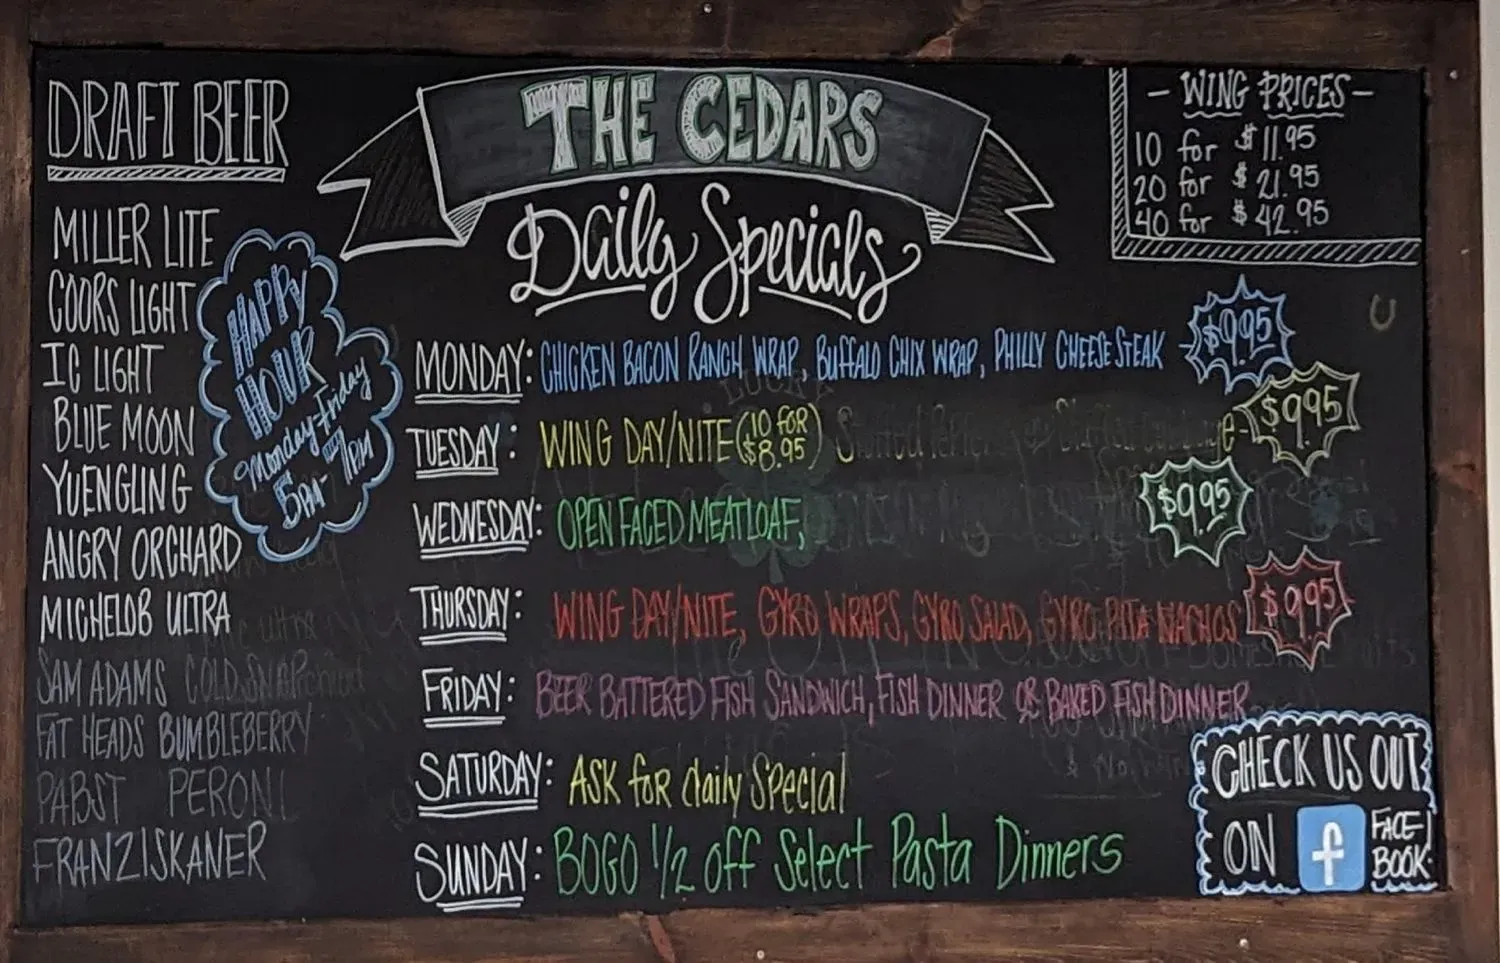 DRAFT BEER
MILLER LITE
COORS LIGHT
IC LIGHT
BLUE MOON
YUENGLING
ANGRY ORCHARD
MICHELOB ULTRA
SAM ADAMS COLD SNAP
FAT HEADS BUMBLEBERRY
PABST PERONI
FRANZISKANER
HAPPY
HOUR
Monday-Friday
5PM-7PM
THE CEDARS
Daily Specials
MONDAY: CHICKEN BACON RANCH WRAP, BUFFALO CHIX WRAP, PHILLY CHEESE STEAK - $9.95
TUESDAY: WING DAY/NITE (10 FOR $8.95) $9.95
WEDNESDAY: OPEN FACED MEATLOAF, $9.95
THURSDAY: WING DAY/NITE, GYRO WRAPS, GYRO SALAD, GYRO PITA NACHOS $9.95
FRIDAY: BEER BATTERED FISH SANDWICH, FISH DINNER OR BAKED FISH DINNER
SATURDAY: ASK for daily Special
SUNDAY: BOGO 1/2 off Select Pasta Dinners
- WING PRICES -
10 for $11.95
20 for $21.95
40 for $42.95
CHECK US OUT
ON f FACE-
BOOK